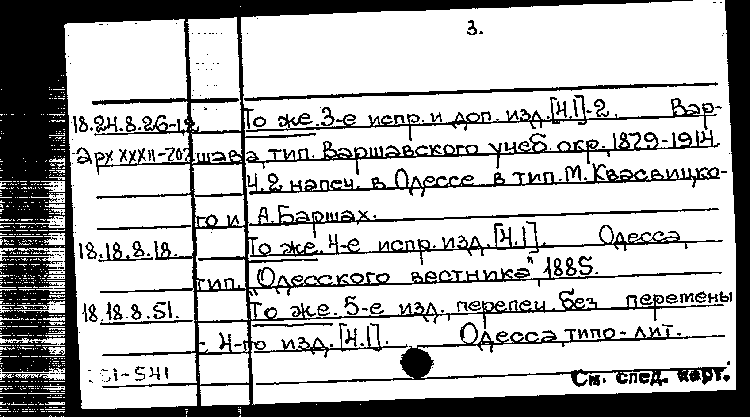 3.
18.24.8.26-1,2 То же. 3-е испр. и доп. изд. [Ч.1]-2. Вар-
Арх XXXII-707 шава, тип. Варшавского учеб. окр., 1879-1914.
Ч.2 напеч. в Одессе в тип. М. Квасвицко-
го и А. Баршах.
18.18.8.18. То же. 4-е испр. изд. [Ч.1]. Одесса,
тип. "Одесского вестника", 1885.
18.18.8.51. То же. 5-е изд., перепеч. без перемены
с 4-го изд. [Ч.1]. Одесса, типо-лит.
51-541
См. след. карт.